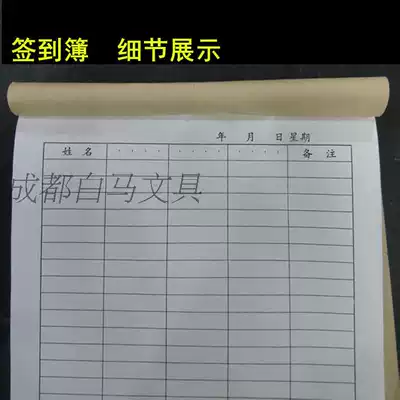 签到簿 细节展示
年 月 日 星期
姓名 ···· ···· ···· 备注
成都白马文具